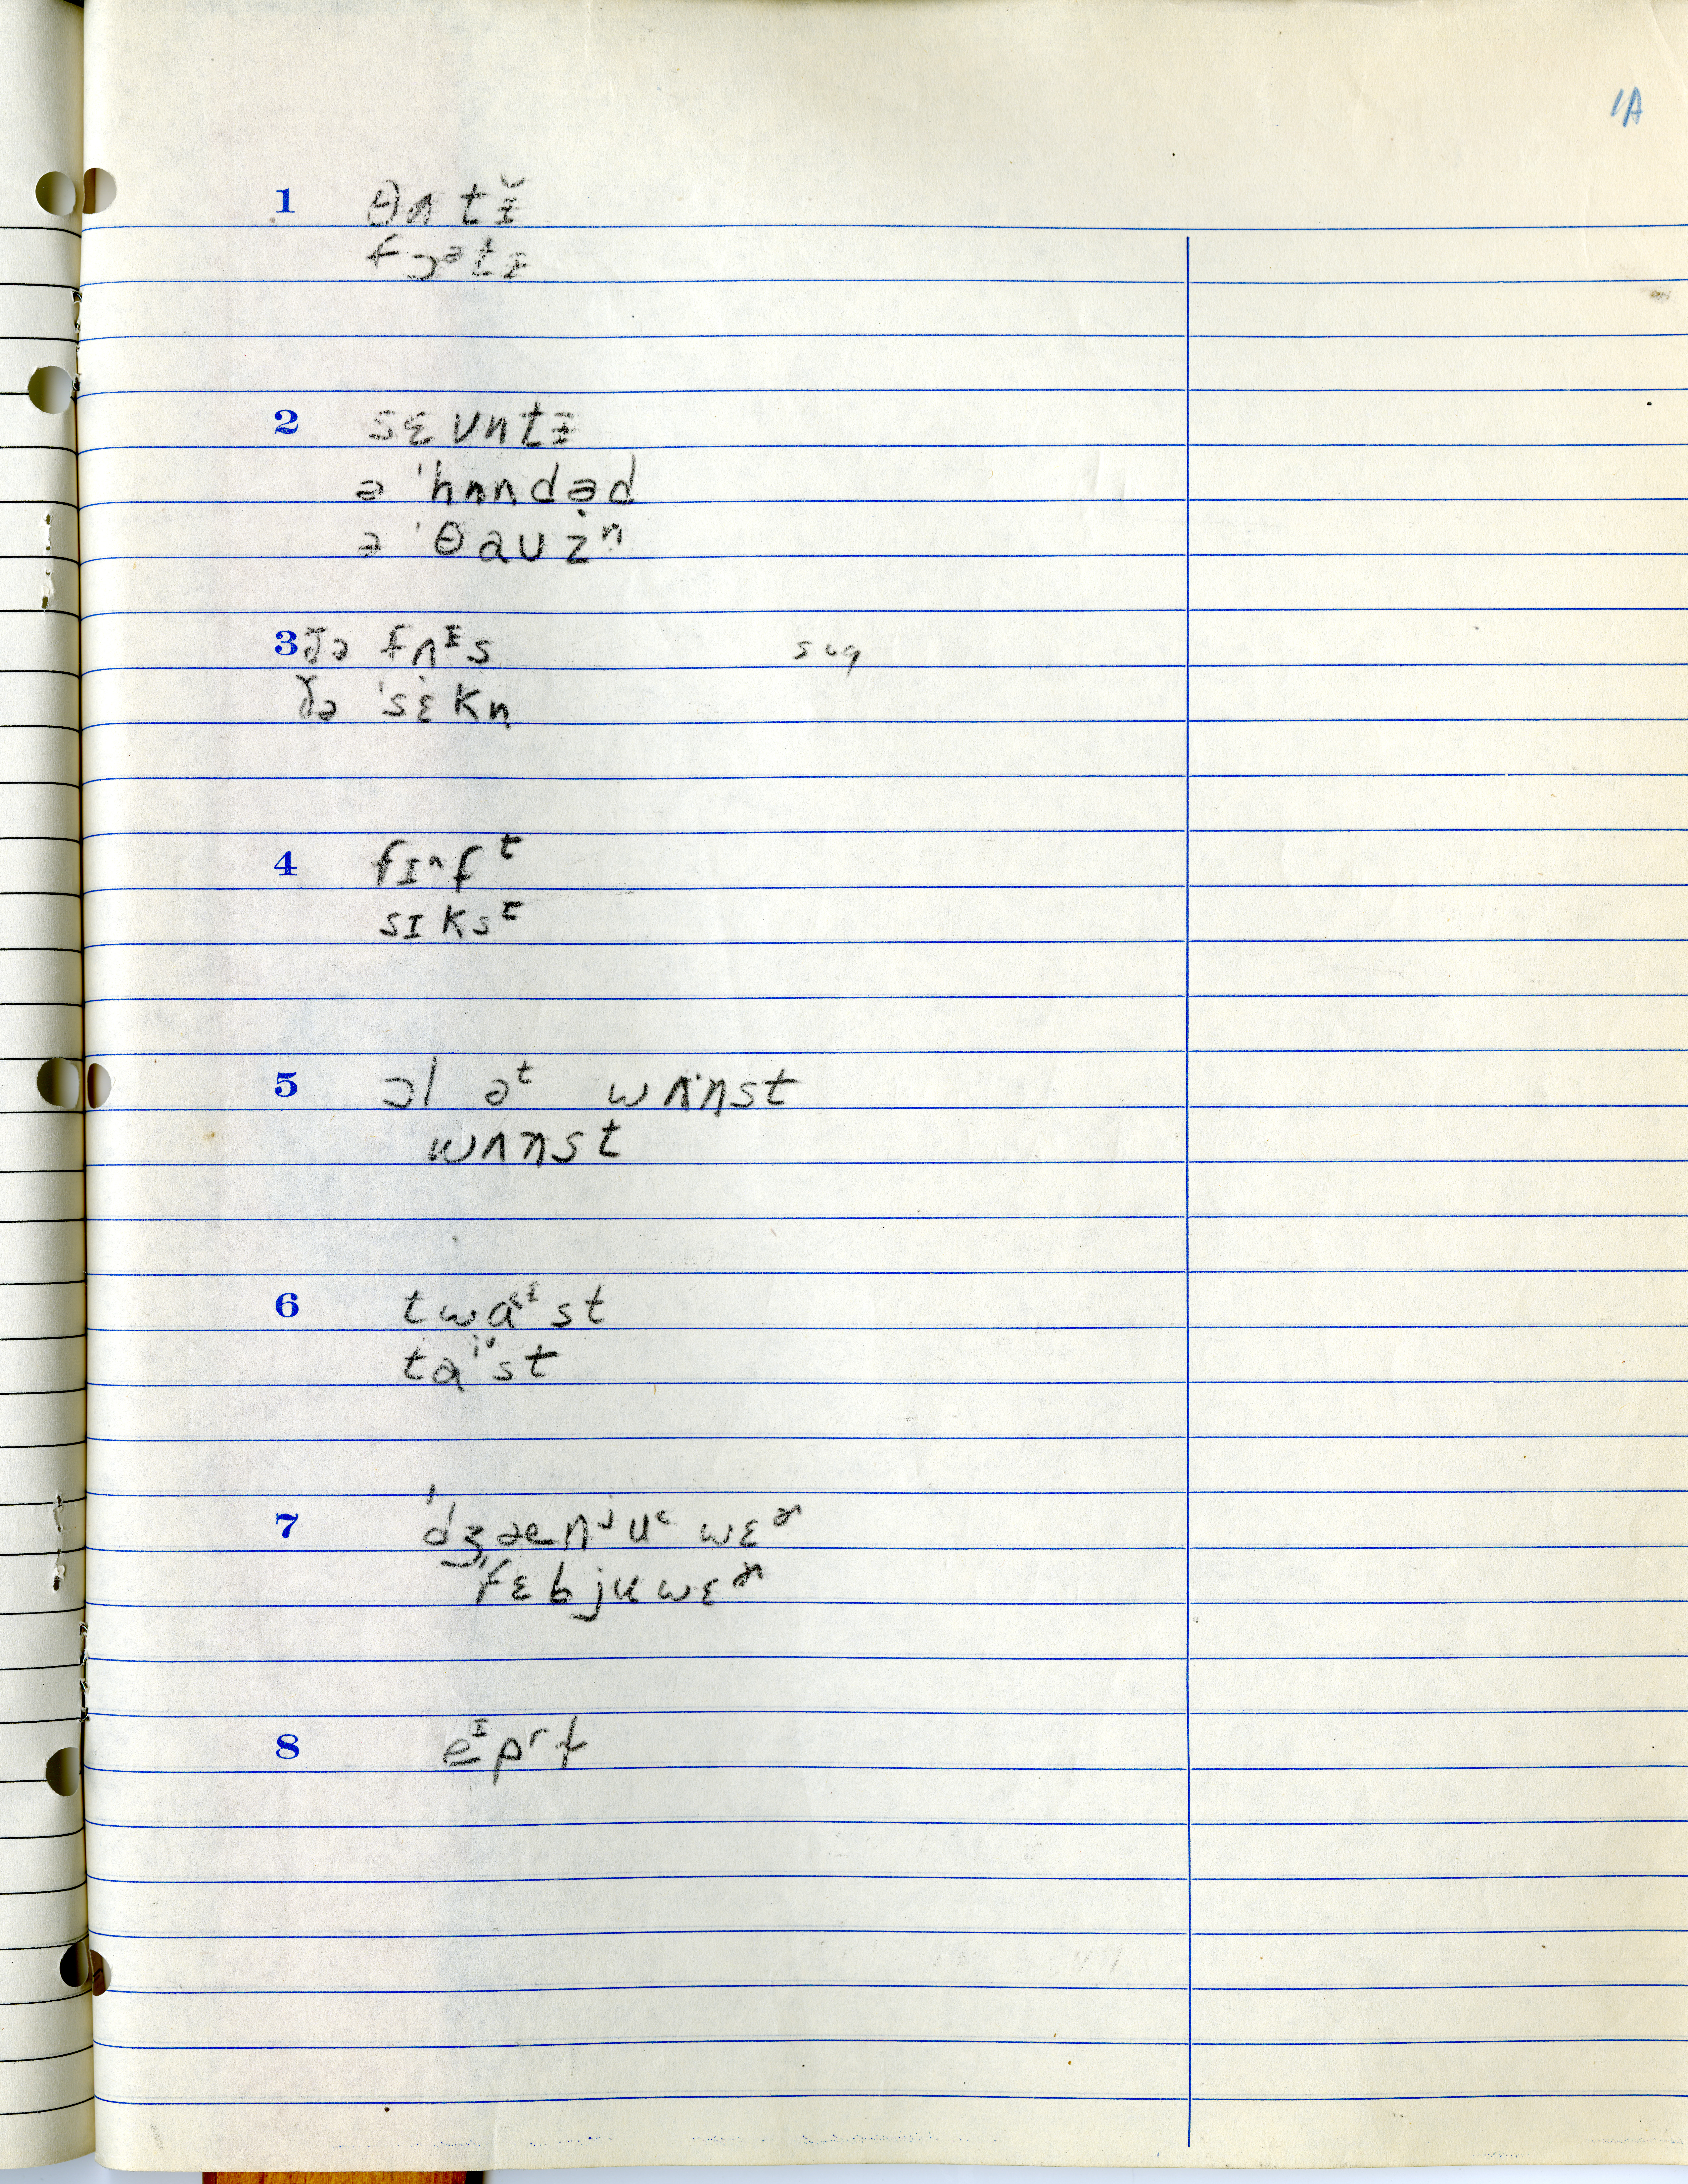 1A
1 θʌtɪ̆
fɔᵊtɪ
2 sɛvntɪ
ə ˈhʌndəd
ə ˈθauzⁿ
3 ðə fʌᶦs sug
ðə ˈsɛkn
4 fɪⁿfᵗ
sɪksᵗ
5 ɔl əᵗ wʌnst
wʌnst
6 twaᵋᶦst
taᶦst
7 ˈdʒænʲuᵋwɛɚ
ˈfɛbjuwɛɚ
8 eᶦpʳɫ